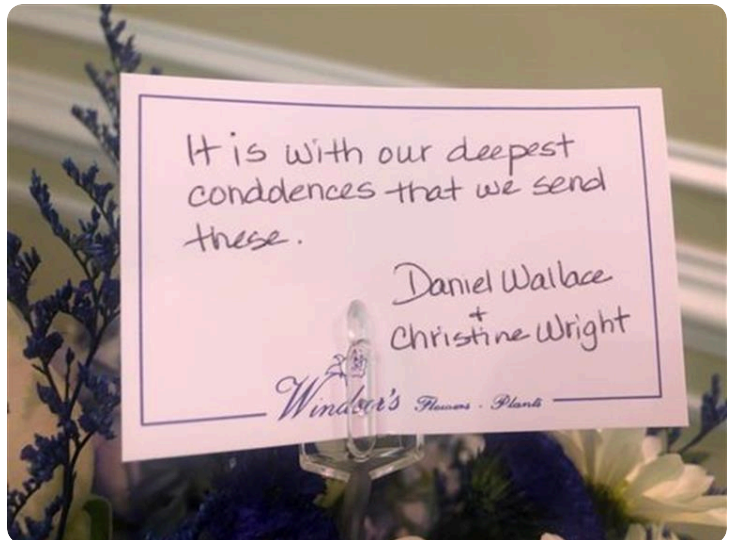 It is with our deepest
condolences that we send
these.
Daniel Wallace
+
Christine Wright
Windsor's Flowers - Plants